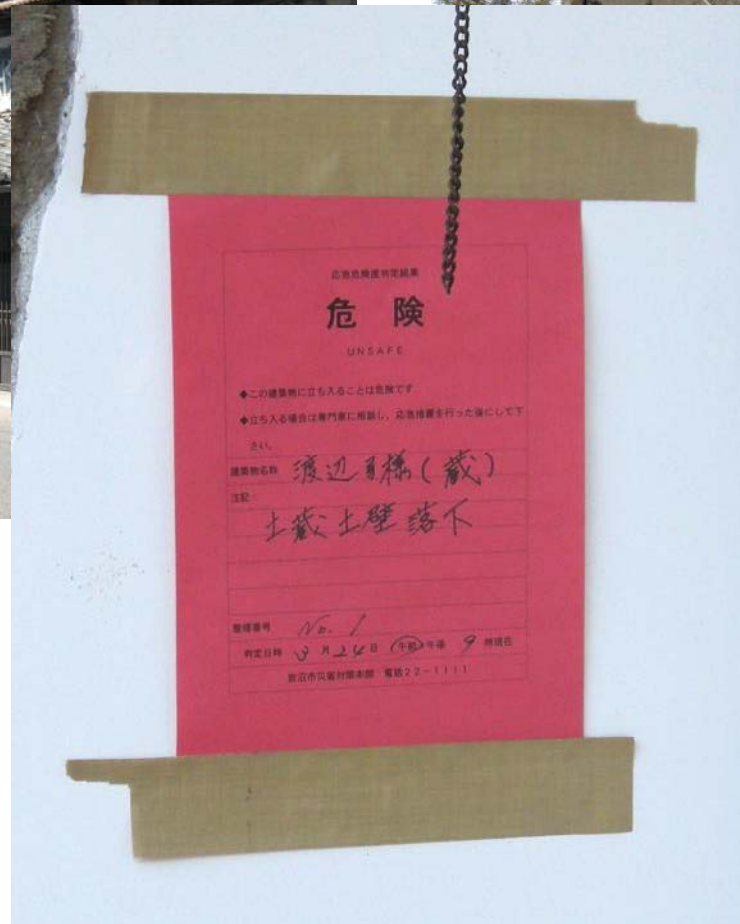 応急危険度判定結果
危 険
UNSAFE
◆この建築物に立ち入ることは危険です
◆立ち入る場合は専門家に相談し、応急措置を行った後にして下
さい。
建築物名称 渡辺 様(蔵)
注記
土蔵土壁落下
整理番号 No. 1
判定日時 3月24日 午前・午後 9時現在
岩沼市災害対策本部 電話22-1111